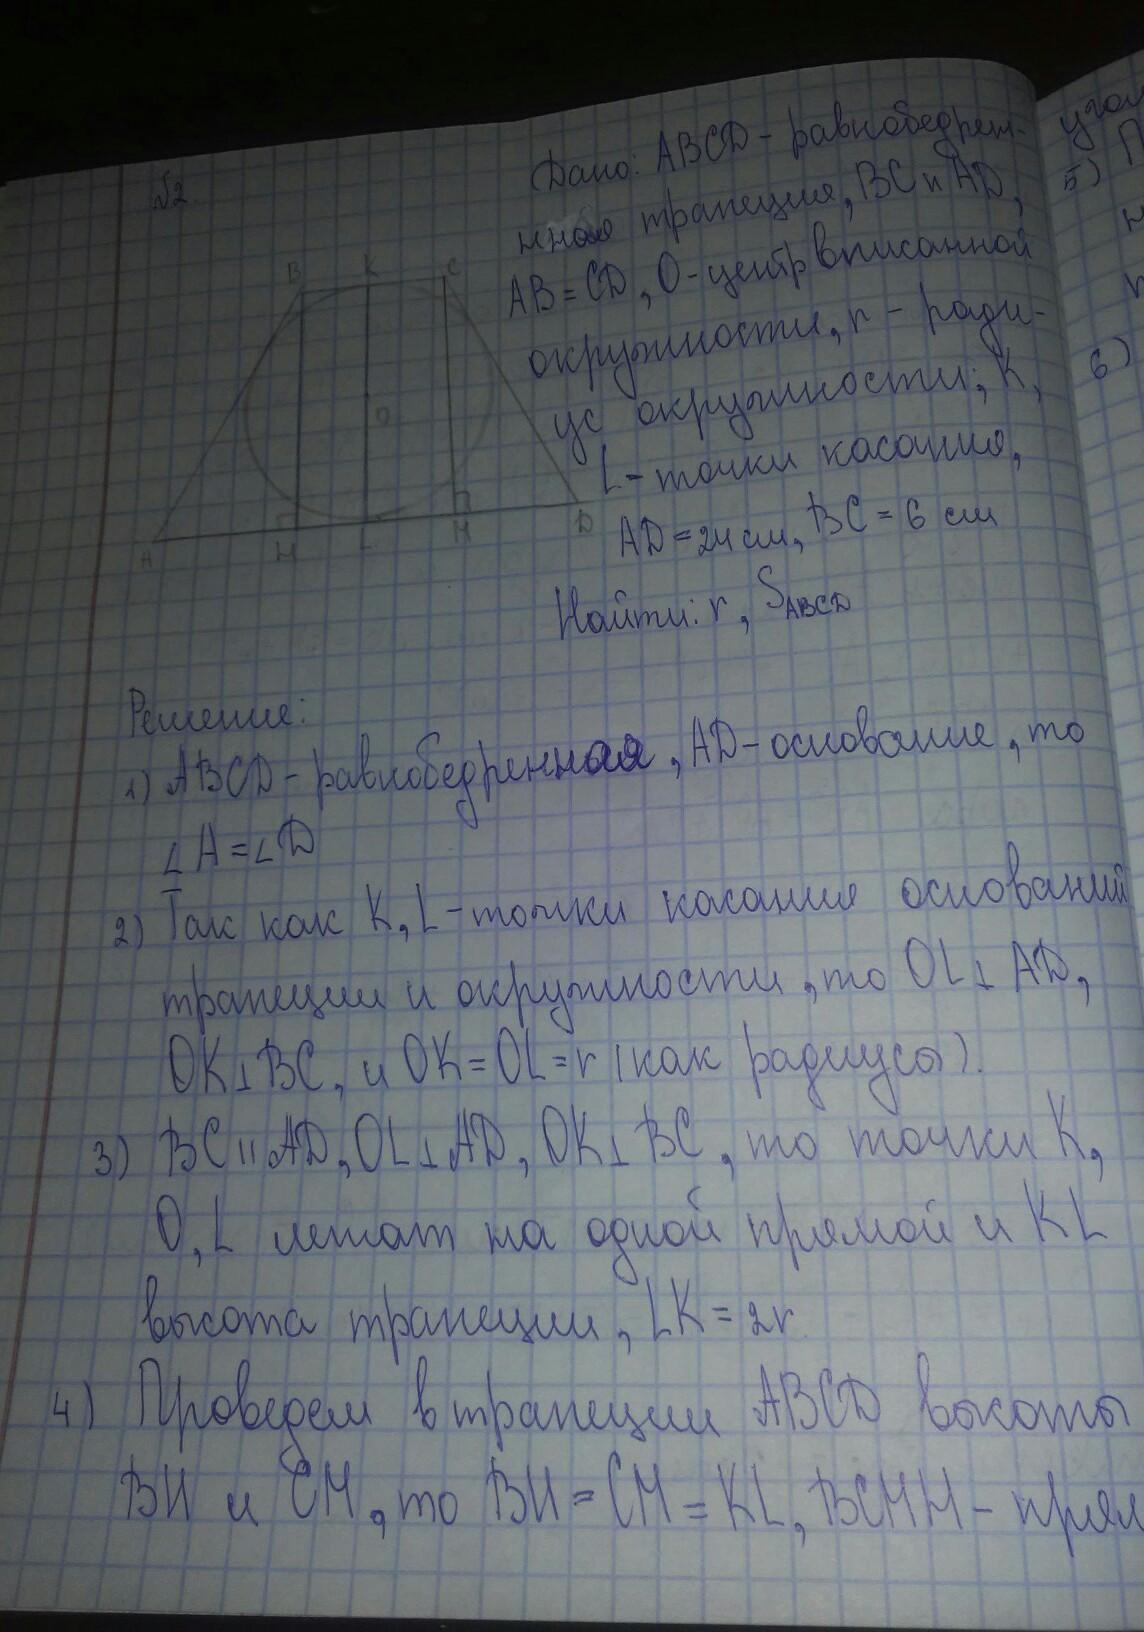 №2
Дано: ABCD - равнобедрен-
нная трапеция, BC и AD,
AB = CD, O - центр вписанной
окружности, r - ради-
ус окружности; K,
L - точки касания,
AD = 24 см, BC = 6 см
Найти: r, SABCD
B K C
O
A H L M D
Решение:
1) ABCD - равнобедренная, AD - основание, то
∠A = ∠D
2) Так как K, L - точки касания оснований
трапеции и окружности, то OL ⊥ AD,
OK ⊥ BC, и OK = OL = r (как радиусы).
3) BC || AD, OL ⊥ AD, OK ⊥ BC, то точки K,
O, L лежат на одной прямой и KL
высота трапеции, LK = 2r
4) Проведем в трапеции ABCD высоты
BH и CM, то BH = CM = KL, BCMH - прям
5)
6)